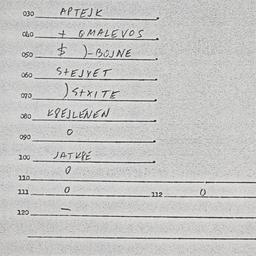 030 APTEJK
040 + GMALEVOS
050 $ )-BOJNE
060 StEJYET
070 )StXITE
080 KPEJLENEN
090 0
100 JATKPE
110 0
111 0 112 0
120 —